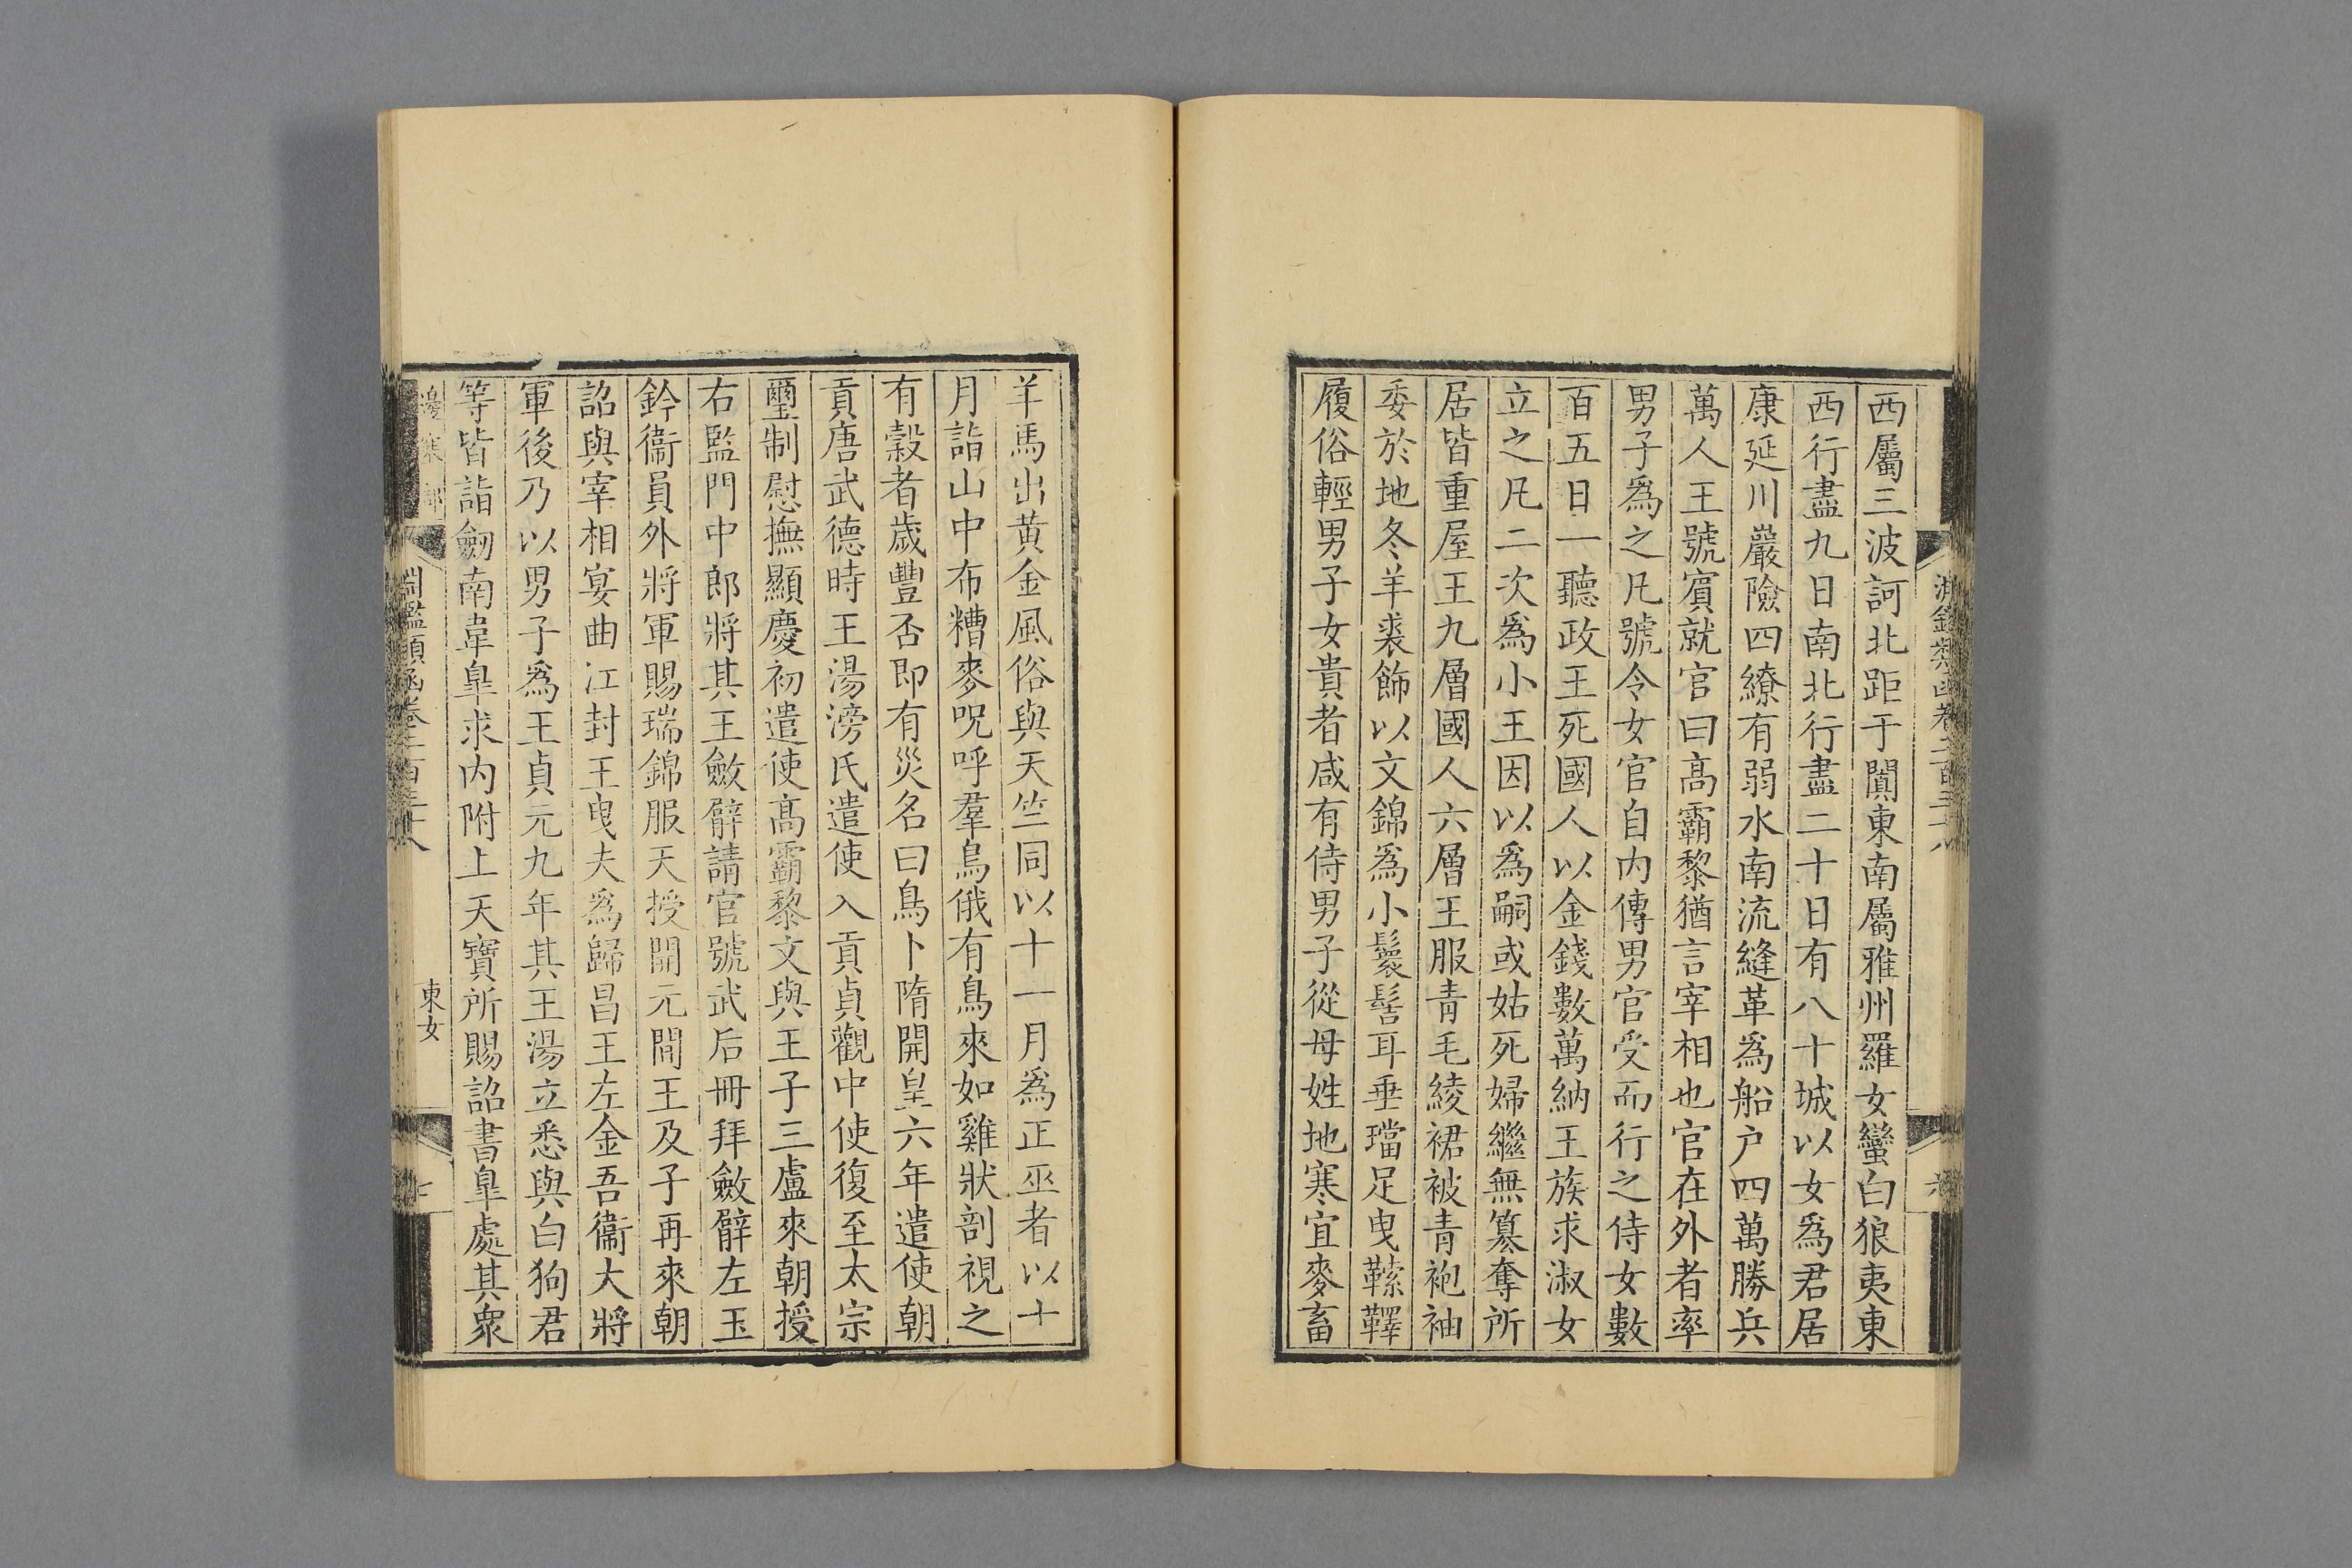 西屬三波訶北距于闐東南屬雅州羅女蠻白狼夷東
西行盡九日南北行盡二十日有八十城以女爲君居
康延川巖險四繚有弱水南流縫革爲船户四萬勝兵
萬人王號賔就官曰髙霸黎猶言宰相也官在外者率
男子爲之凡號令女官自内傳男官受而行之侍女數
百五日一聽政王死國人以金錢數萬納王族求淑女
立之凡二次爲小王因以爲嗣或姑死婦繼無篡奪所
居皆重屋王九層國人六層王服青毛綾裙被青袍袖
委於地冬羊裘飾以文錦爲小鬟髻耳垂璫足曳䩫鞸
履俗輕男子女貴者咸有侍男子從母姓地寒宜麥畜
羊馬出黄金風俗與天竺同以十一月爲正巫者以十
月詣山中布糟麥呪呼羣鳥俄有鳥來如雞狀剖視之
有穀者歲豐否即有災名曰鳥卜隋開皇六年遣使朝
貢唐武德時王湯滂氏遣使入貢貞觀中使復至太宗
璽制慰撫顯慶初遣使髙霸黎文與王子三盧來朝授
右監門中郎將其王斂臂請官號武后冊拜斂臂左玉
鈐衞員外將軍賜瑞錦服天授開元間王及子再來朝
詔與宰相宴曲江封王曳夫爲歸昌王左金吾衞大將
軍後乃以男子爲王貞元九年其王湯立悉與白狗君
等皆詣劔南韋臯求内附上天寶所賜詔書臯處其衆
邊塞部
淵鑑類函卷二百三十八
東女
七